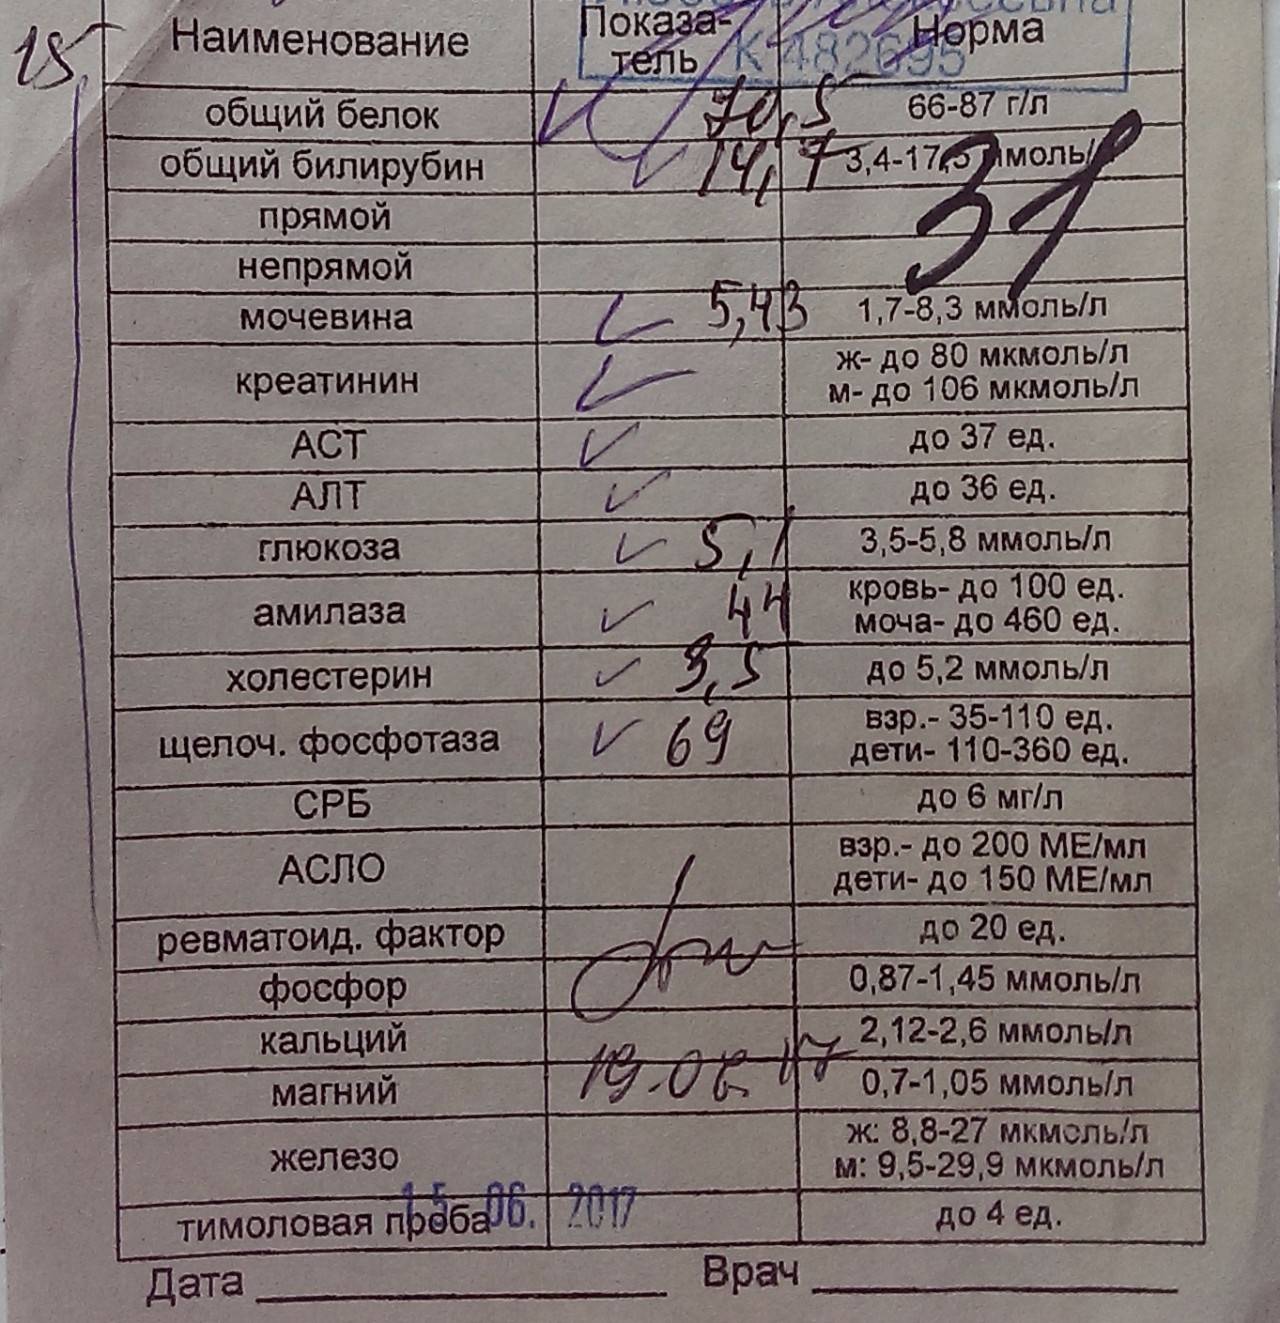 15
Наименование Показа- Норма
тель К 482695
общий белок 70,5 66-87 г/л
общий билирубин 14,7 3,4-17,5 ммоль/
31
прямой
непрямой
мочевина 5,43 1,7-8,3 ммоль/л
креатинин ж- до 80 мкмоль/л
м- до 106 мкмоль/л
АСТ до 37 ед.
АЛТ до 36 ед.
глюкоза 5,1 3,5-5,8 ммоль/л
амилаза 44 кровь- до 100 ед.
моча- до 460 ед.
холестерин 3,5 до 5,2 ммоль/л
щелоч. фосфотаза 69 взр.- 35-110 ед.
дети- 110-360 ед.
СРБ до 6 мг/л
АСЛО взр.- до 200 МЕ/мл
дети- до 150 МЕ/мл
ревматоид. фактор до 20 ед.
фосфор 0,87-1,45 ммоль/л
кальций 2,12-2,6 ммоль/л
магний 19.06.17 0,7-1,05 ммоль/л
железо ж: 8,8-27 мкмоль/л
м: 9,5-29,9 мкмоль/л
тимоловая проба 15 06. 2017 до 4 ед.
Дата Врач